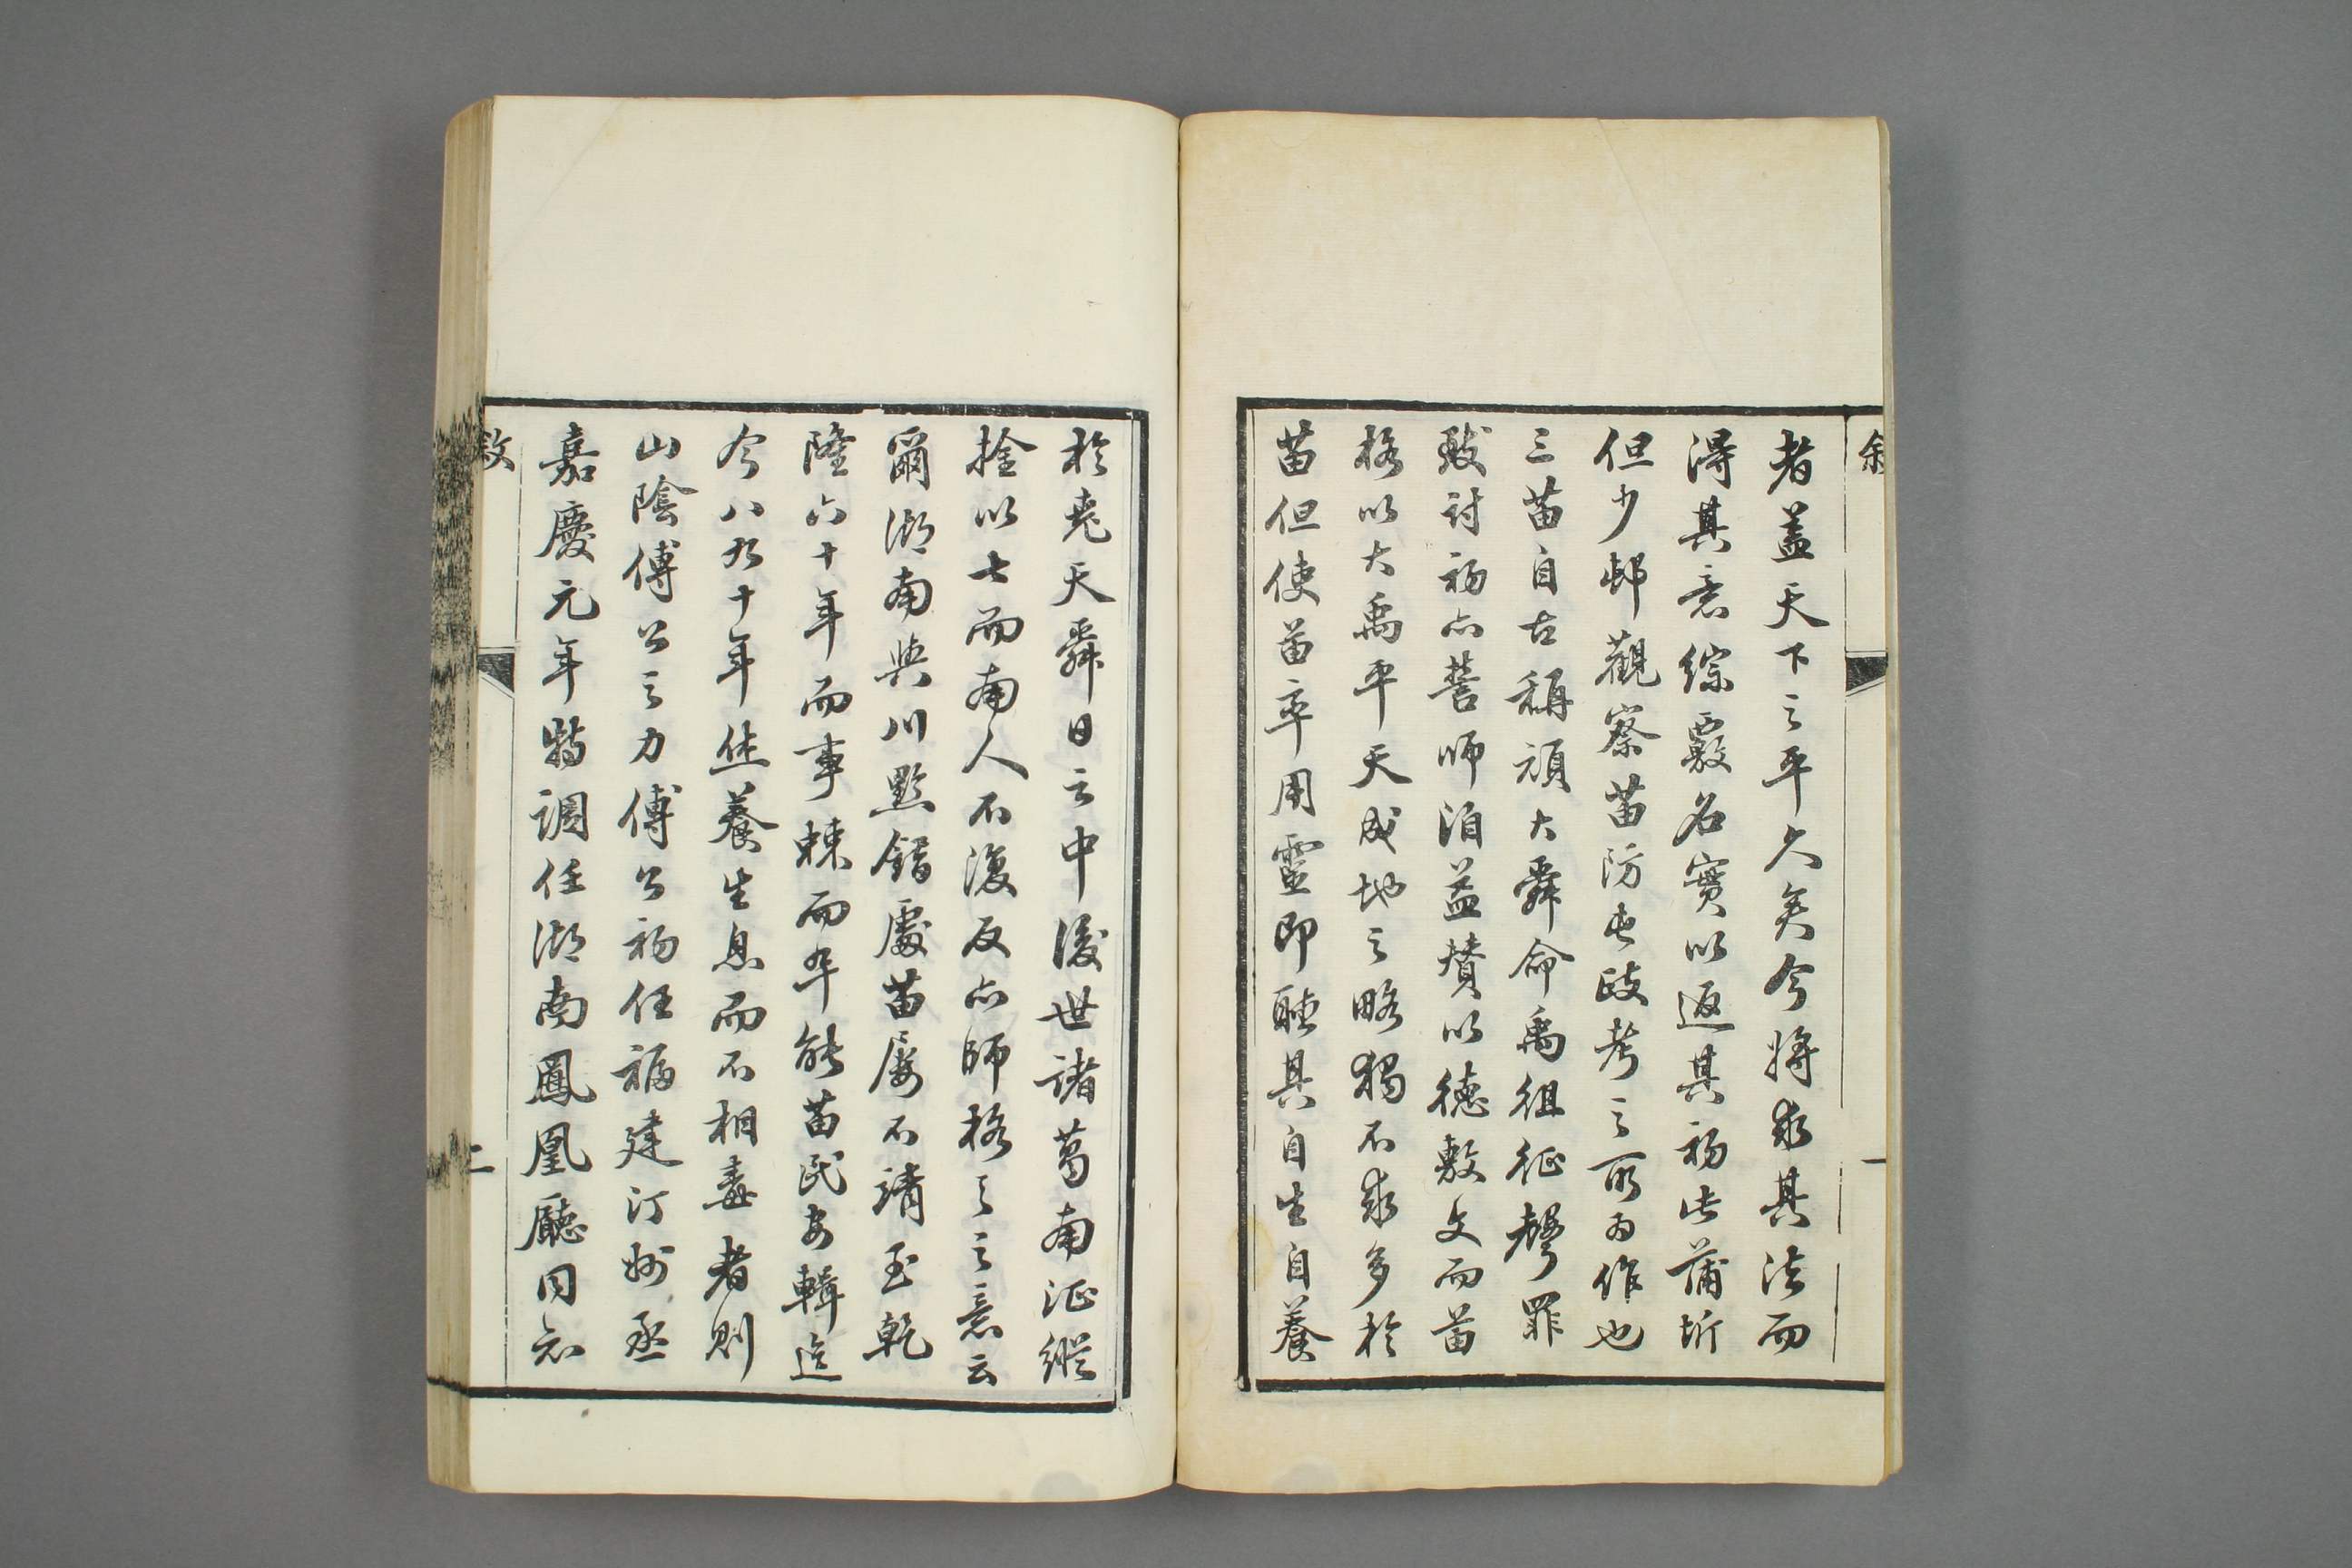 者蓋天下之平久矣今將求其法而
得其意綜覈名實以返其初此蒲圻
但少邨觀察苗防屯政考之所為作也
三苗自古稱頑大舜命禹徂征聲罪
致討初亦誓師洎益贊以德敷文而苗
格以大禹平天成地之略猶不求多於
苗但使苗卒用靈即聽其自生自養
於堯天舜日之中後世諸葛南征縱
擒以七而南人不復反亦師格之之意云
爾湖南與川黔錯處苗屢不靖至乾
隆六十年而事棘而卒能苗民安輯迄
今八九十年休養生息而不相毒者則
山陰傅公之力傅公初任福建汀州丞
嘉慶元年特調任湖南鳳凰廳同知
敘
二